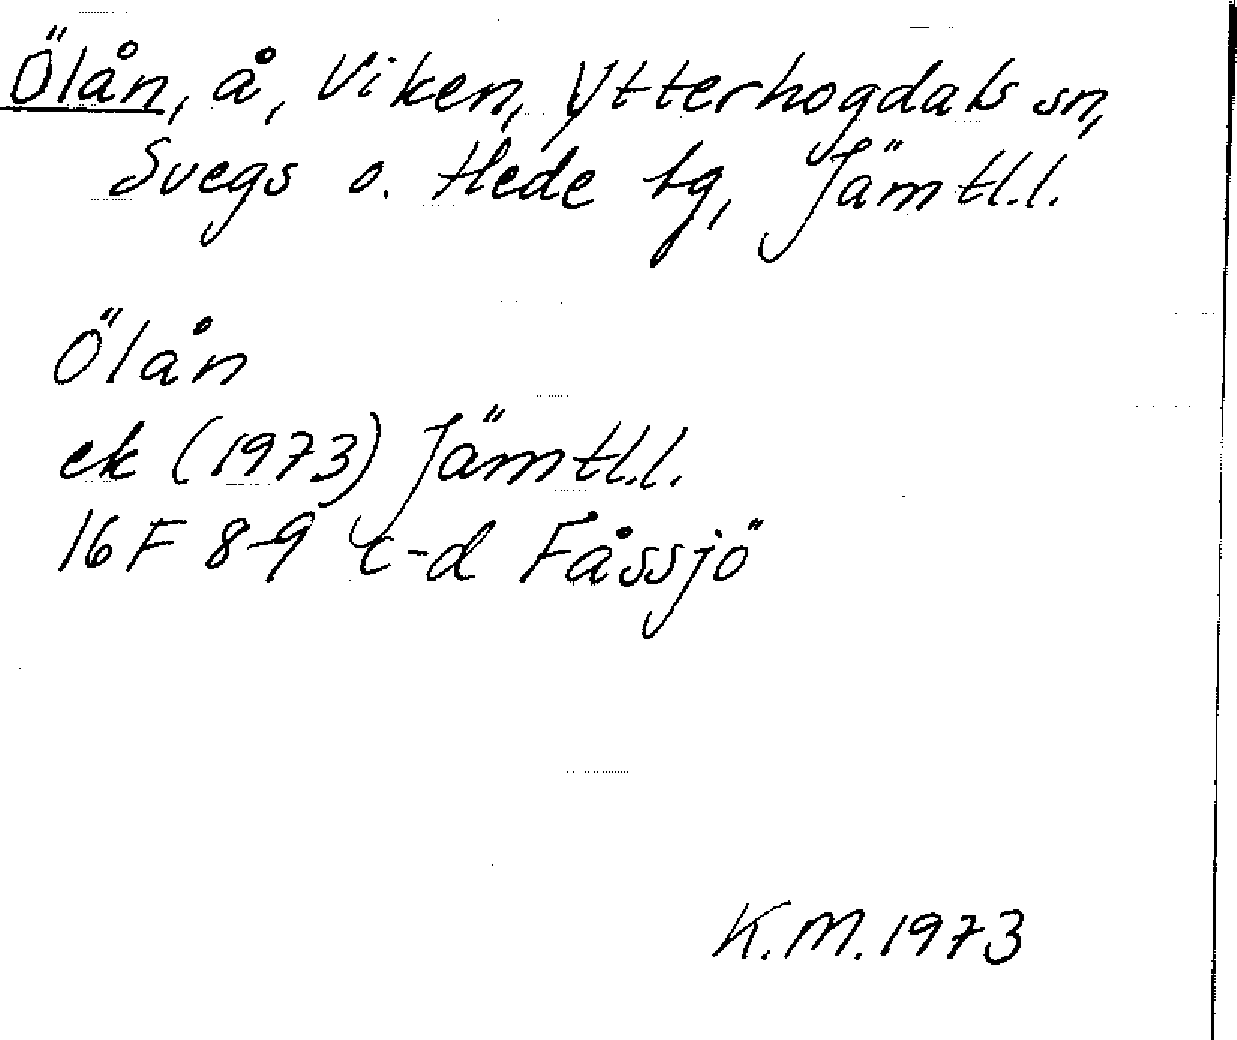 Ölån, å, Viken, Ytterhogdals sn,
Svegs o. Hede tg, Jämtl.l.
Ölån
ek (1973) Jämtl.l.
16 F 8-9 c-d Fåssjö
K.M. 1973